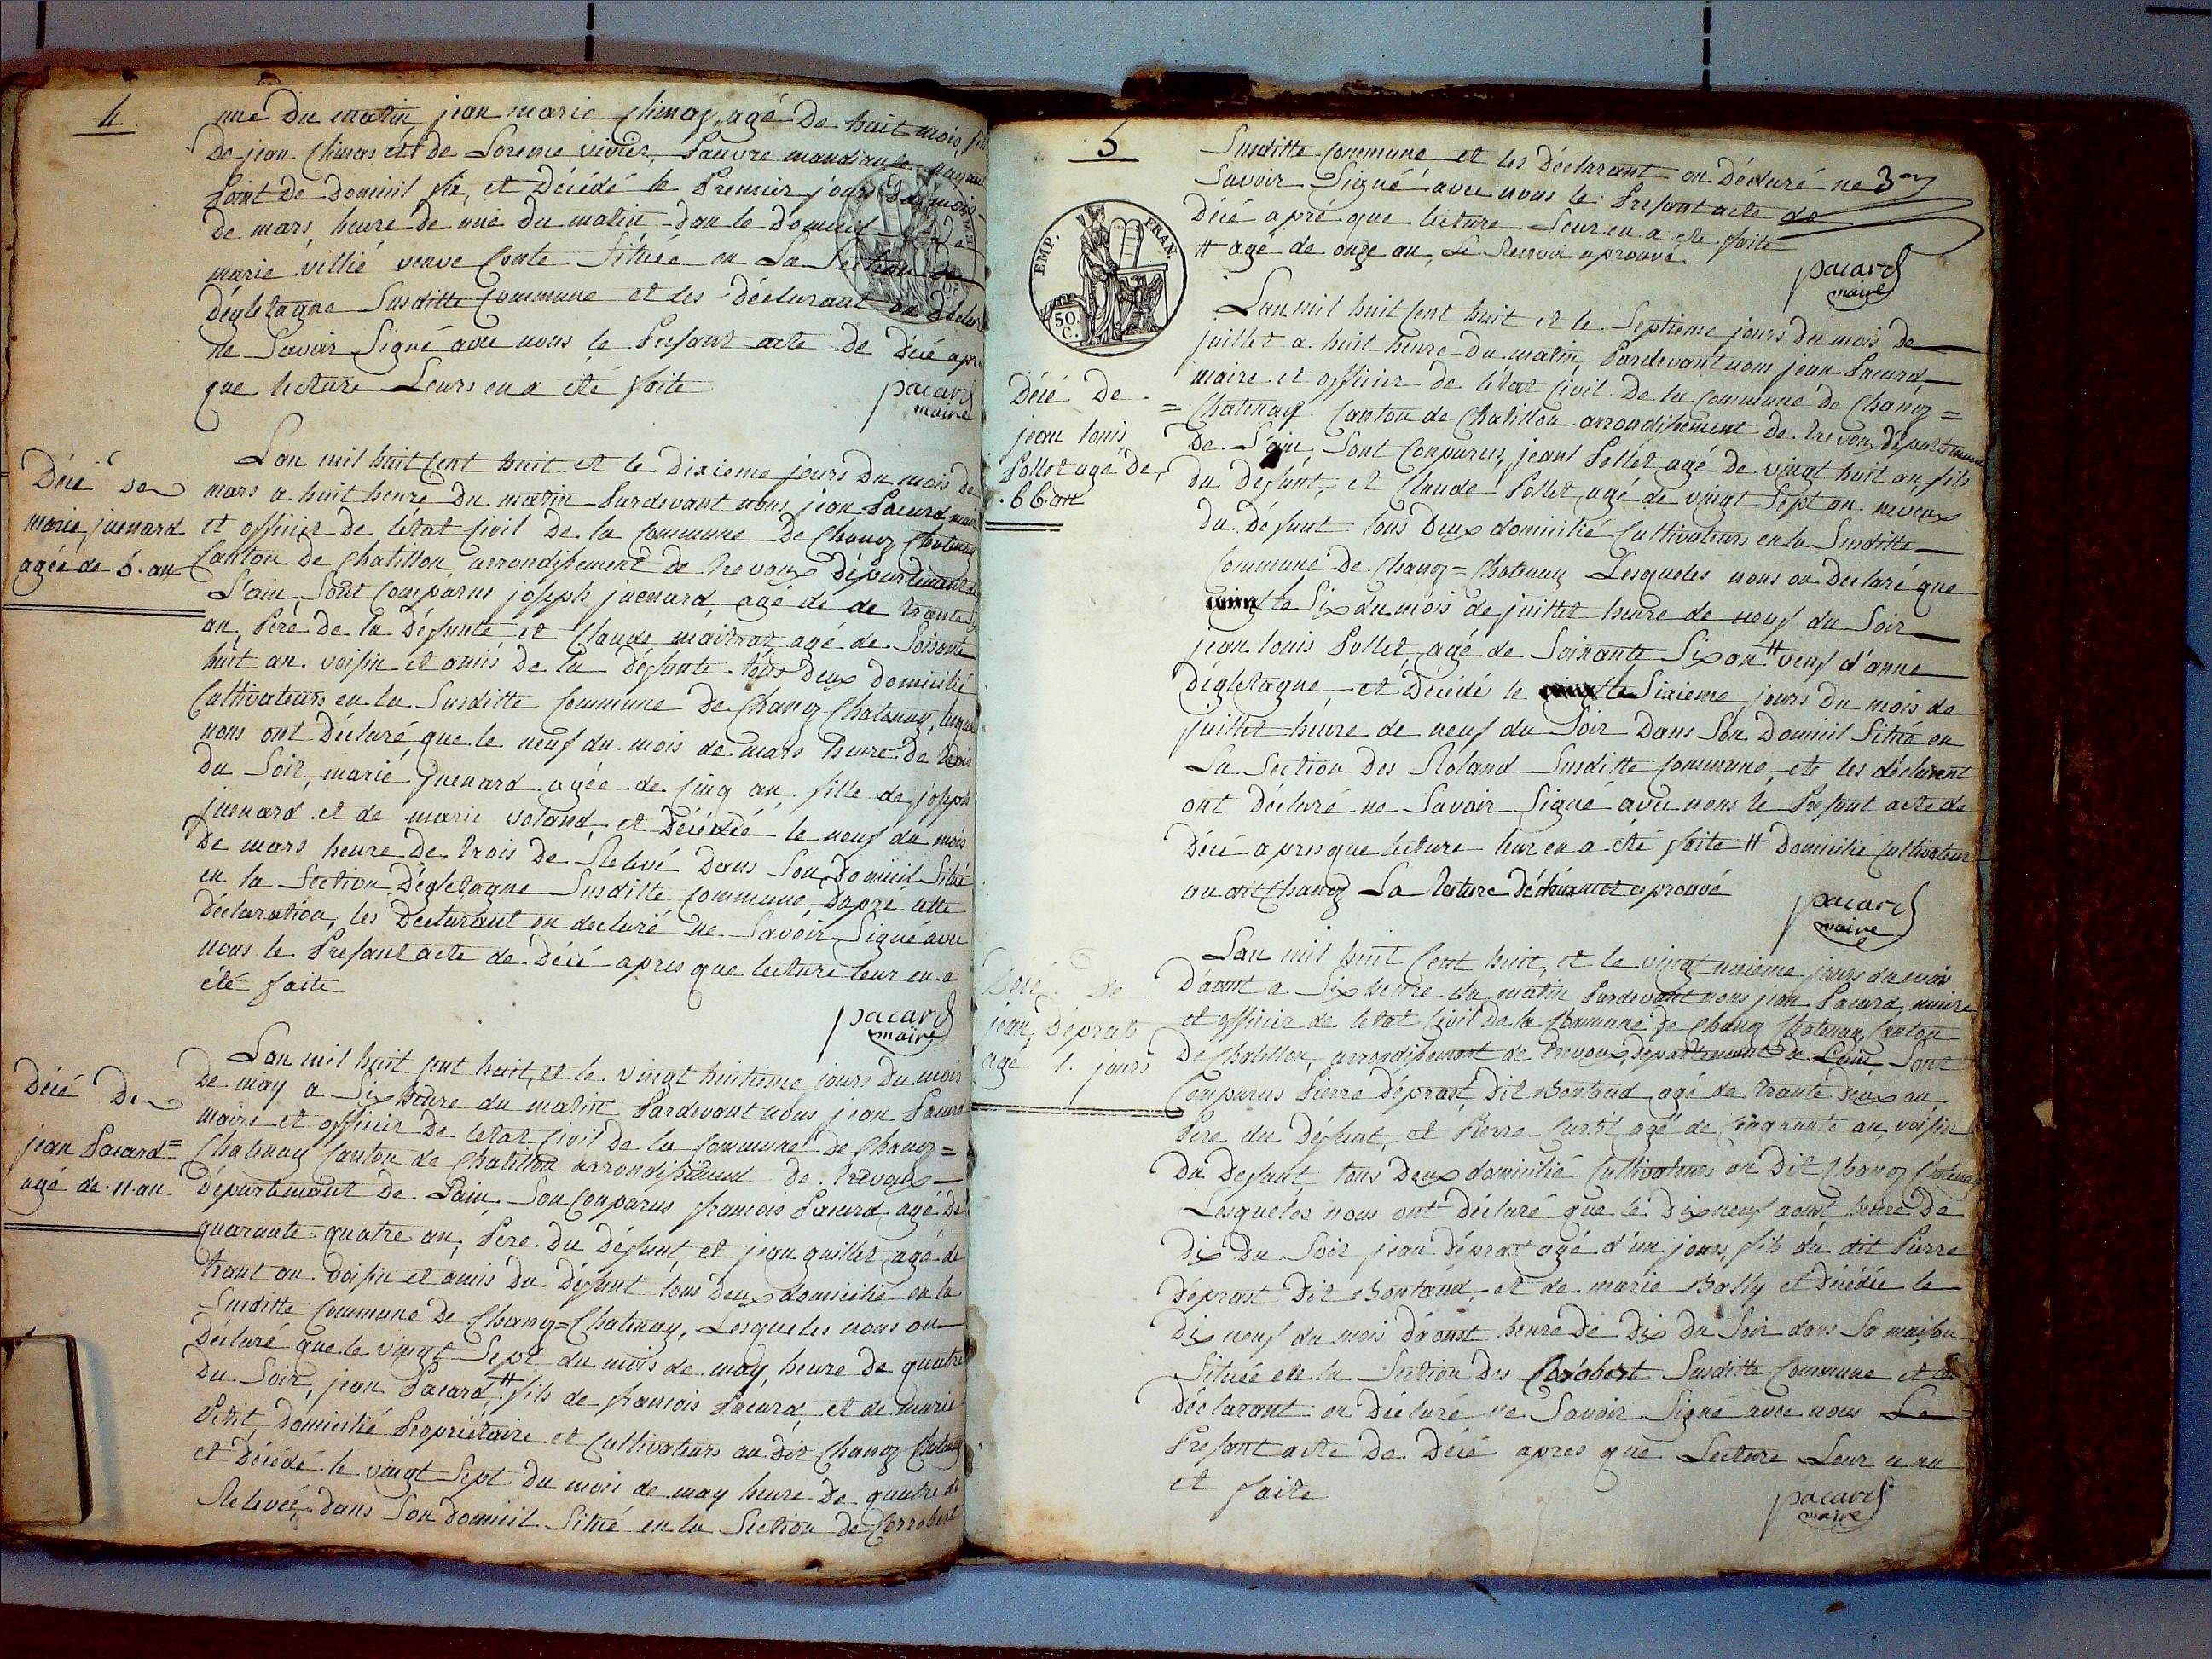 4
une du matin jean marie Chinas, agé de huit mois, fils
de jean Chinas et de Loreine vivier, Pauvre mandiante nayant
Point de domicil fix, et Décédé le Premier jours du mois
de mars, heure de une du matin dan le domicil de
marie villié veuve Conte Située en La Section
Dégletagne Susditte Commune et les Déclarant on Déclaré
ne Savoir Signé avec nous le Presant acte de Décé apré
que lecture Leurs en a été faite
pacard
maire
Décé de
marie juenard
agée de 5. an
Lan mil huit Cent huit et le dixieme jours du mois de
mars a huit heure du matin Pardevant nous jean Pacard maire
et officier de létat Civil de la Commune de Chanoz Chatenay
Canton de Chatillon arrondissement de Trevoux département de
L'ain, Sont Comparus joseph juenard, agé de de trante
an, Père de la Défunte et Claude maitrat, agé de Soixante
huit an voisin et amis de la défunte tous deux domicilié
Cultivateurs en la Susditte Commune de Chanoz Chatenay, lesquel
nous ont Déclaré que le neuf du mois de mars heure de trois
du Soir, marie juenard agée de Cinq an fille de joseph
juenard et de marie voland, et Décédé le neuf du mois
de mars heure de trois de Relevé dans Son domicil Situé
en la Section Dégletagne Susditte Commune, Dapré cette
Déclaration, les Déclarant on declaré ne Savoir Signé avec
nous le Presant acte de Décé apres que lecture leur en a
été faite
pacard
maire
Décé de
jean Pacard
agé de 11. an
Lan mil huit Cent huit, et le vingt huitieme jours du mois
de may a Six heure du matin Pardevant nous jean Pacard
maire et officier de letat Civil de la Commune de Chanoz=
Chatenay Canton de Chatillon arrondissement de Trevoux
département de Lain Son Comparus francois Pacard, agé de
quarante quatre an, Pere du Défunt, et jean guillet agé de
trant an voisin et amis du Défunt tous deux domicilié en la
Susditte Commune de Chanoz=Chatenay, Lesqueles nous on
Déclaré que le vingt Sept du mois de may, heure de quatre
du Soir, jean Pacard, # fils de francois Pacard, et de marie
Petit, Domicilié Propriétaire et Cultivateurs au dit Chanoz Chatenay
et Décédé le vingt Sept du mois de may heure de quatre de
Relevée, dans Son domicil Situé en la Section de Corrobert
5
EMP. FRAN.
50 C.
Susditte Commune et les Déclarant on Déclaré ne
Savoir Signé avec nous le Presant acte de
Décé apré que lecture Leur en a été faite
# agé de onze an, Le Renvoi aprouvé
pacard
maire
Décé de
jean louis
Pollet agé de
.66 an
Lan mil huit Cent huit et le Septieme jours du mois de
juillet a huit heure du matin, Pardevant nous jean Pacard
maire et officier de létat Civil de la Commune de Chanoz=
=Chatenay Canton de Chatillon arrondissement de Trevoux département
de L'ain, Sont Comparus, jean Pollet, agé de vingt huit an, fils
du Défunt, et Claude Pollet, agé de vingt Sept an neveux
du Défunt tous Deux domicilié Cultivateurs en la Susditte
Commune de Chanoz=Chatenay Lesqueles nous on Declaré que
le Six du mois de juillet heure de neuf du Soir
jean louis Pollet, agé de Soixante Six an # veuf d'anne
Dégletagne et Décédé le Sixieme jours du mois de
juillet heure de neuf du Soir Dans Son Domicil Situé en
La Section des Roland Susditte Commune, ete les déclarent
ont Déclaré ne Savoir Signé avec nous le Presant acte de
Décé apres que lecture leur en a été faite # domicilié Cultivateur
au dit Chanoz La Rature de deux mot aprouvé
pacard
maire
Décé de
jean, déprast
agé 1. jours
Lan mil huit Cent huit, et le vingt unieme jours du mois
Daout a Six heure du matin Pardevant nous jean Pacard, maire
et officier de letat Civil de la Commune de Chanoz Chatenay Canton
de Chatillon, arrondissement de Trevoux département de Lain, Sont
Comparus Pierre déprast, Dit Bontand agé de trante deux an
Pere du Défunt, et Pierre Curtil agé de Cinquante an, voisin
Du Defunt tous Deux domicilié Cultivateurs au Dit Chanoz Chatenay
Lesqueles nous ont Déclaré que le Dix neuf aoust heure De
Dix Du Soir jean déprast agé d'un jours, fils du dit Pierre
Déprast Dit Bontand, et de marie Bally et Décédée le
Dix neuf du mois Daoust heure De Dix Du Soir dans Sa maison
Située en la Section des Corobert Susditte Commune et les
Déclarant on Déclaré ne Savoir Signé avec nous Le
Presant acte De Décé apres que Lecture Leur en a
et faite
pacard
maire